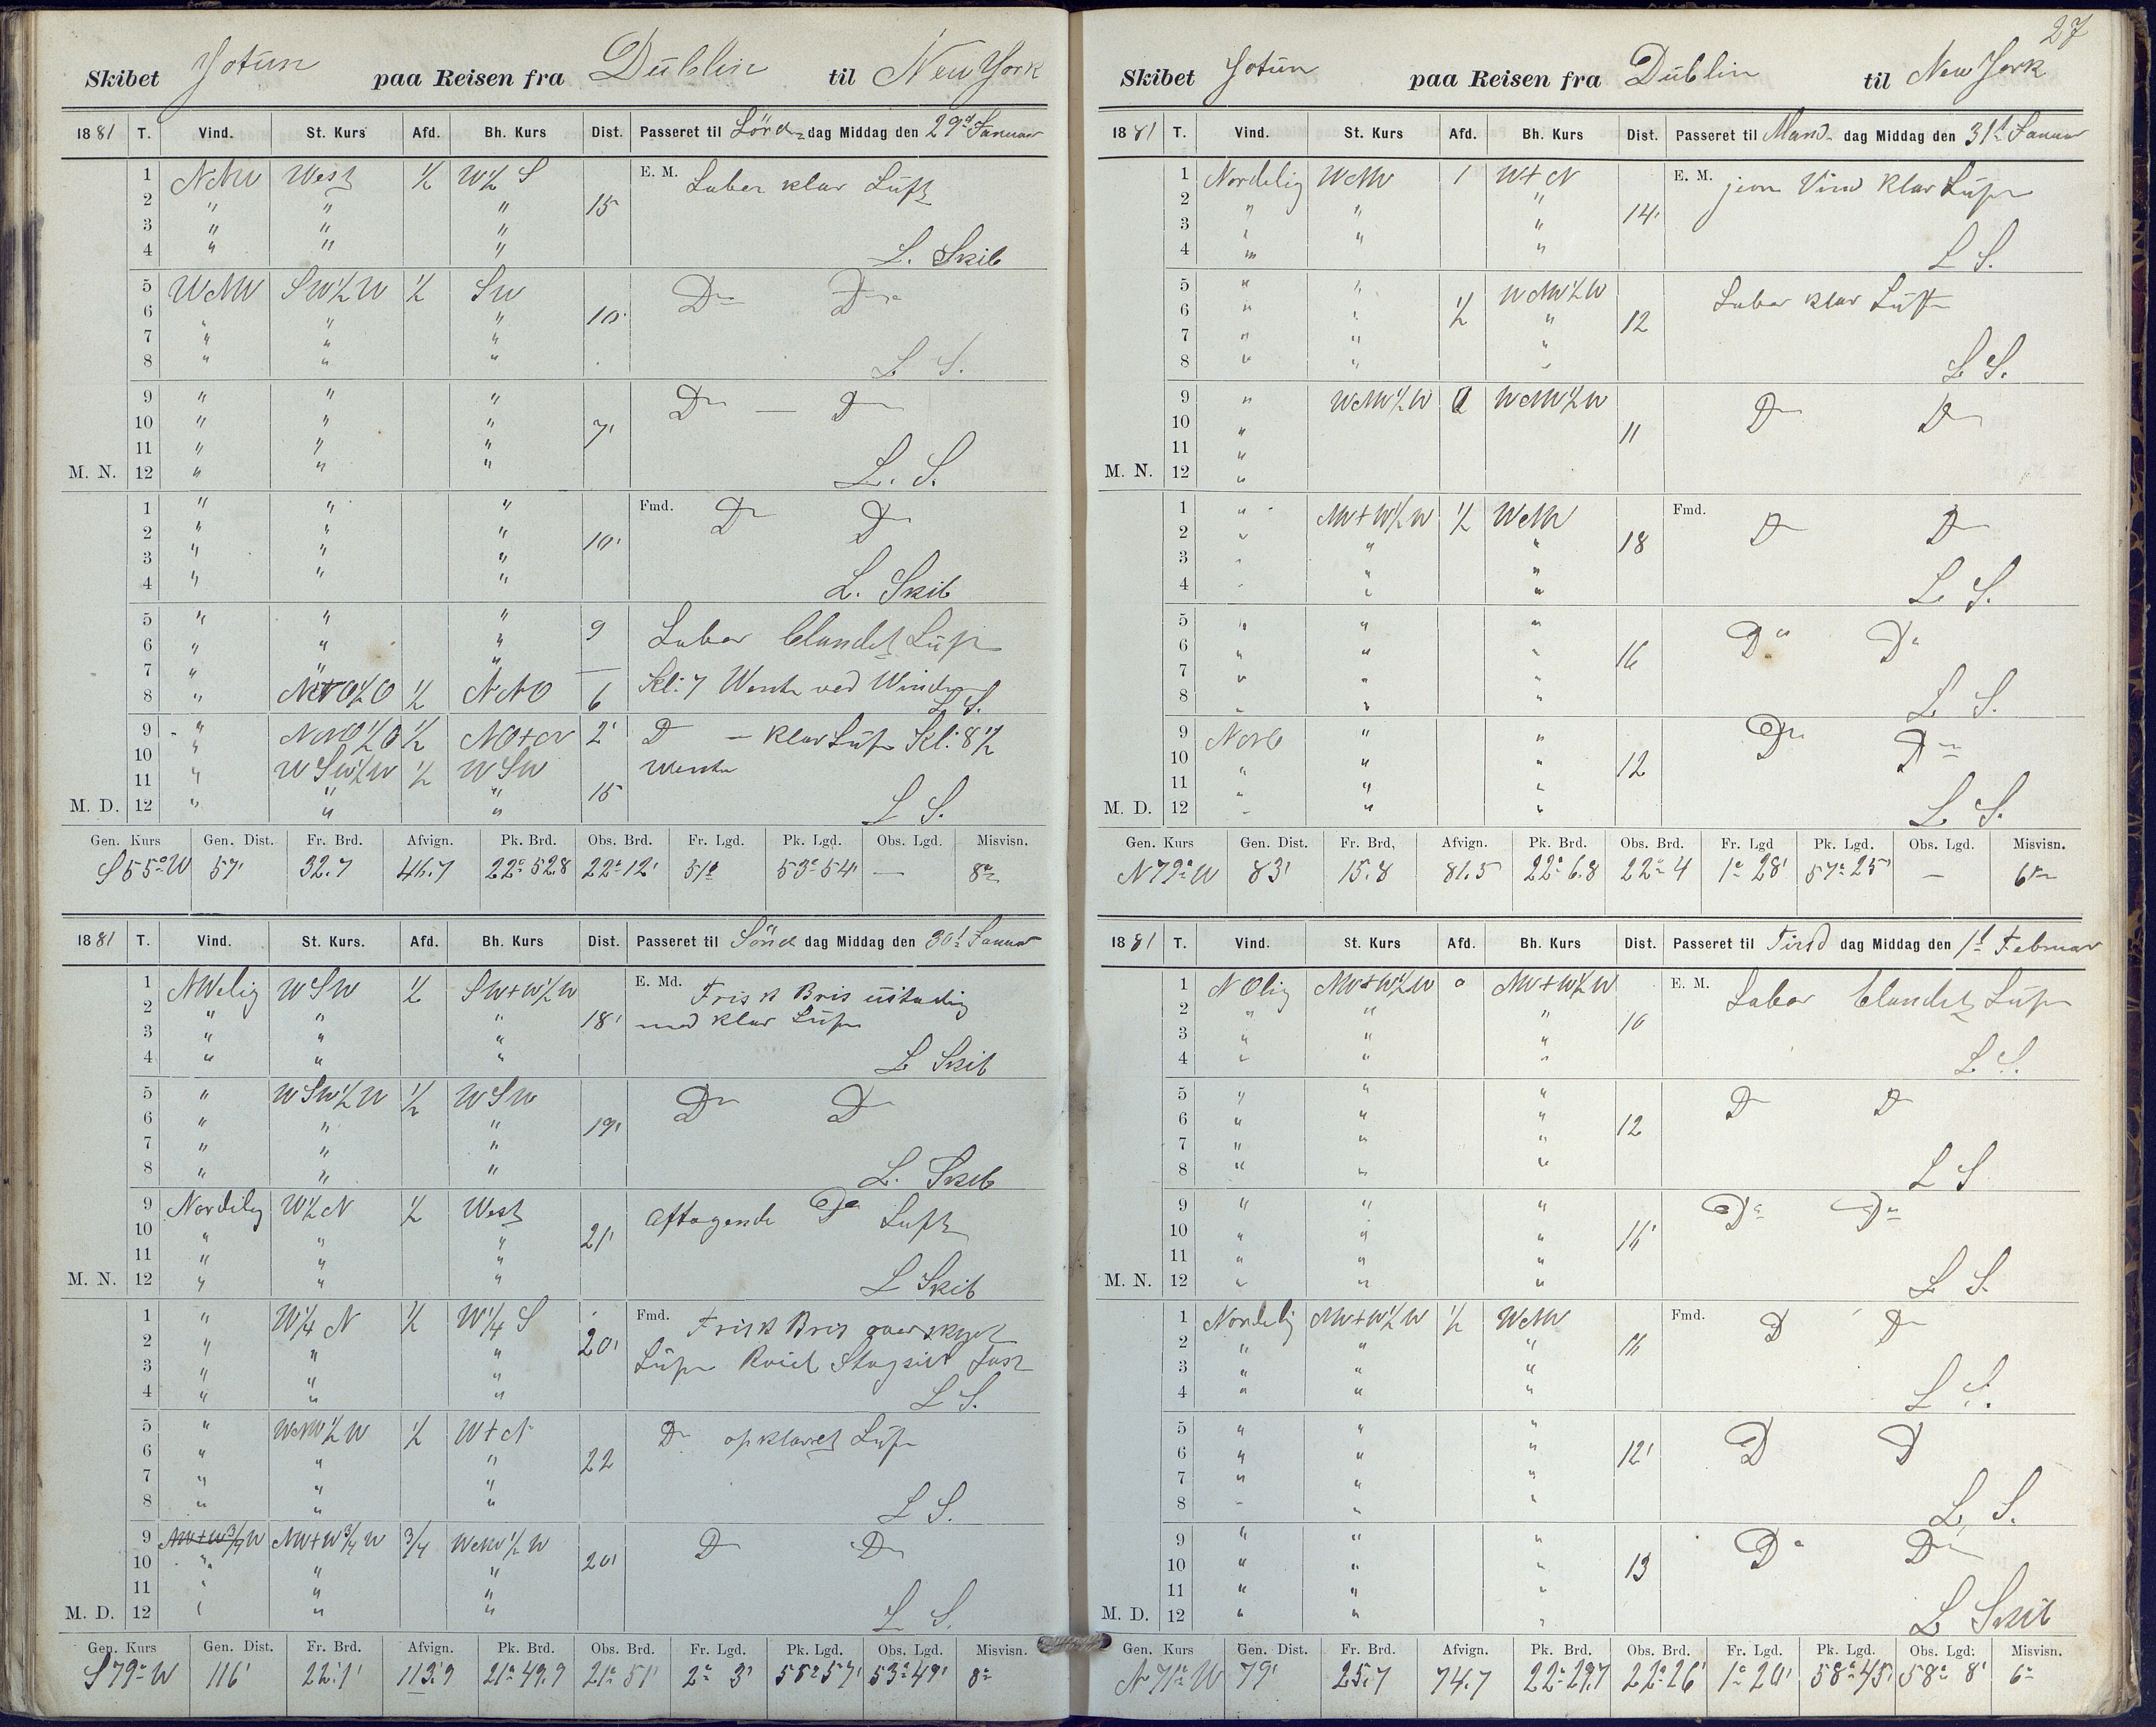 Skibet Jotun paa Reisen fra Dublin til New York
1881 T. Vind. St. Kurs Afd. Bh. Kurs Dist. Passeret til Lördagdag Middag den 29d Januar
1 NNW West ½ W½ S E. M. Laber klar Luft
2 " " " 15
3 " " "
4 " " " L. Skib
5 WNW SW½W ½ SW Do Do
6 " " " 10'
7 " " "
8 " " " L. S.
9 " " " Do — Do
10 " " " 7'
11 " " "
M. N. 12 " " " L. S.
1 " " " Fmd. Do Do
2 " " " 10'
3 " " "
4 " " " L. Skib
5 " " " 9 Laber blandet Luft
6 " " "
7 " " " — Kl: 7 Wente ved Winden
8 " ½ NNO 6 L. S.
9 " NNO½O ½ NO+N 2' D — klar Luft Kl: 8½
10 " WSW½W ½ WSW Wente
11 " " " 15
M. D. 12 " " " L S.
Gen. Kurs Gen. Dist. Fr. Brd. Afvign. Pk. Brd. Obs. Brd. Fr. Lgd. Pk. Lgd. Obs. Lgd. Misvisn.
S55°W 57' 32.7 46.7 22° 52.8 22° 12' 51' 53° 54' — 8°
1881 T. Vind. St. Kurs. Afd. Bh. Kurs Dist. Passeret til Sönd dag Middag den 30t Januar
1 NWelig WSW ½ SW+W½W E. Md. Frisk Bris ustadig
2 " " " 18' med klar Luft
3 " " "
4 " " " L Skib
5 " WSW½W ½ WSW Do Do
6 " " " 19'
7 " " "
8 " " " L. Skib
9 Nordelig W½N ½ West Aftagende Do Luft
10 " " " 21'
11 " " "
M. N. 12 " " " L Skib
1 " W¼ N ½ W¼ S Fmd. Frisk Bris overskyet
2 " " " 20' Luft Stagseil fast
3 " " "
4 " " " L S.
5 " WNW½W ½ W+N Do opklaret Luft
6 " " " 22
7 " " "
8 " " " L S.
9 NW+W¾W NW+W¾W ¾ WNW½W Do Do
10 " " " 20'
11 " " "
M. D. 12 " " " L S.
Gen. Kurs Gen. Dist. Fr. Brd. Afvign. Pk. Brd. Obs. Brd. Fr. Lgd. Pk. Lgd. Obs. Lgd. Misvisn.
S79°W 116' 22.1' 113.9 21° 49.9 21° 51' 2° 3' 55° 57' 53° 49' 8°
27
Skibet Jotun paa Reisen fra Dublin til New York
1881 T. Vind. St. Kurs Afd. Bh. Kurs Dist. Passeret til Mand- dag Middag den 31t Januar
1 Nordelig WNW 1 W+N E. M. jevn Vind klar Luft
2 " " " 14'
3 " " "
4 " " L S.
5 " " WNW½W Laber klar Luft
6 " " ½ " 12
7 " " "
8 " " " L S.
9 " WNW½W 0 WNW½W Do Do
10 " 11
11 "
M. N. 12 "
1 " NW+W½W ½ WNW Fmd. Do Do
2 " " " 18
3 " " "
4 " " " L S.
5 " " " Do Do
6 " " " 16
7 " " "
8 " " " L S.
9 Nord " " Do Do
10 " " " 12
11 " " "
M. D. 12 " " " L S.
Gen. Kurs Gen. Dist. Fr. Brd, Afvign. Pk. Brd. Obs. Brd. Fr. Lgd Pk. Lgd. Obs. Lgd. Misvisn.
N79°W 83' 15.8 81.5 22° 6.8 22° 4 1° 28' 57° 25' — 6°
1881 T. Vind. St. Kurs Afd. Bh. Kurs Dist. Passeret til Tirsd dag Middag den 1t Februar
1 NOlig NW+W½W 0 NW+W½W E. M. Laber blandet Luft
2 " " " 10
3 " " "
4 " " " L S.
5 " " " D D
6 " " " 12
7 " " "
8 " " " L S
9 " " " Do Do
10 " " " 16'
11 " " "
M. N. 12 " " " L S.
1 Nordelig NW+W½W ½ WNW Fmd. D Do
2 " " " 16
3 " " "
4 " " " L S.
5 " " " D D
6 " " " 12'
7 " " "
8 " " " L S.
9 " " " Do Do
10 " " " 13
11 " " "
M. D. 12 " " " L Skib
Gen. Kurs Gen. Dist. Fr. Brd. Afvign. Pk. Brd. Obs. Brd. Fr. Lgd. Pk. Lgd. Obs. Lgd: Misvisn.
N71°W 79' 25.7 74.7 22° 29.7 22° 26' 1° 20' 58° 45' 58° 8' 6°